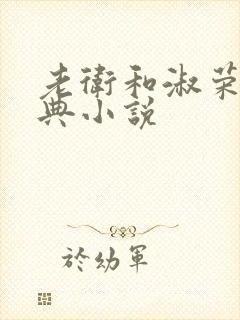 老衛和淑荣
典小説
於幼軍